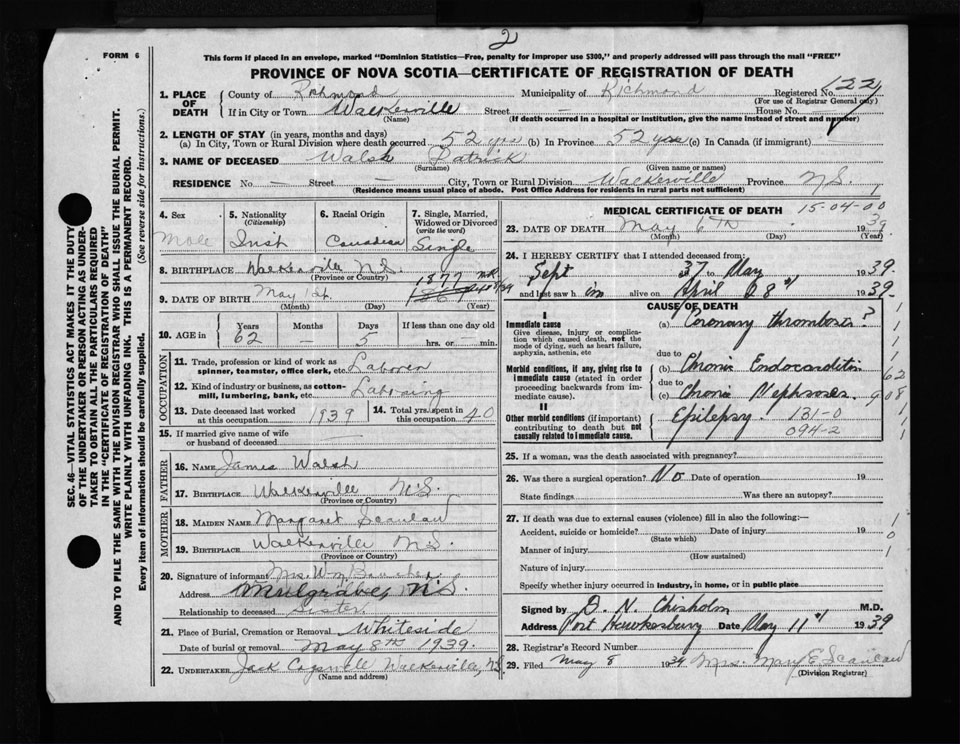 2
FORM 6
This form if placed in an envelope, marked "Dominion Statistics—Free, penalty for improper use $300," and properly addressed will pass through the mail "FREE"
PROVINCE OF NOVA SCOTIA—CERTIFICATE OF REGISTRATION OF DEATH
SEC. 46—VITAL STATISTICS ACT MAKES IT THE DUTY
OF THE UNDERTAKER OR PERSON ACTING AS UNDER-
TAKER TO OBTAIN ALL THE PARTICULARS REQUIRED
IN THE "CERTIFICATE OF REGISTRATION OF DEATH"
AND TO FILE THE SAME WITH THE DIVISION REGISTRAR WHO SHALL ISSUE THE BURIAL PERMIT.
WRITE PLAINLY WITH UNFADING INK. THIS IS A PERMANENT RECORD.
Every item of information should be carefully supplied. (See reverse side for instructions.)
1. PLACE OF DEATH County of Richmond Municipality of Richmond Registered No. 1221
(For use of Registrar General only)
If in City or Town Walkerville Street — House No. —
(Name) (If death occurred in a hospital or Institution, give the name instead of street and number)
2. LENGTH OF STAY (in years, months and days)
(a) In City, Town or Rural Division where death occurred 52 yrs (b) In Province 52 yrs (c) In Canada (if immigrant) —
3. NAME OF DECEASED Walsh Patrick
(Surname) (Given name or names)
RESIDENCE No — Street — City, Town or Rural Division Walkerville Province N.S. 1
(Residence means usual place of abode. Post Office Address for residents in rural parts not sufficient)
4. Sex Male
5. Nationality (Citizenship) Irish
6. Racial Origin Canadian
7. Single, Married, Widowed or Divorced (write the word) Single
8. BIRTHPLACE Walkerville N.S.
(Province or Country)
1877
9. DATE OF BIRTH May 1st.
(Month) (Day) (Year)
10. AGE in Years 62 Months — Days 5 If less than one day hrs. or — min.
OCCUPATION
11. Trade, profession or kind of work as spinner, teamster, office clerk, etc. Laborer
12. Kind of industry or business, as cotton-mill, lumbering, bank, etc. Laboring
13. Date deceased last worked at this occupation 1939 14. Total yrs. spent in this occupation 40
15. If married give name of wife or husband of deceased —
FATHER
16. NAME James Walsh
17. BIRTHPLACE Walkerville N.S.
(Province or Country)
MOTHER
18. MAIDEN NAME Margaret Scanlan
19. BIRTHPLACE Walkerville N.S.
(Province or Country)
20. Signature of informant Mrs. Wm
Address Mulgrave, N.S.
Relationship to deceased Sister
21. Place of Burial, Cremation or Removal Whiteside
Date of burial or removal May 8th 1939.
22. UNDERTAKER Jack Cogswell Walkerville, N.S.
(Name and address)
MEDICAL CERTIFICATE OF DEATH 15-04-00
23. DATE OF DEATH May 6th 1939
(Month) (Day) (Year)
24. I HEREBY CERTIFY that I attended deceased from:
Sept 37 to May 1939.
and last saw him alive on April 28th 1939.
CAUSE OF DEATH
I
Immediate cause
Give disease, injury or complication which caused death, not the mode of dying, such as heart failure, asphyxia, asthenia, etc
(a) Coronary thrombosis?
due to
Morbid conditions, if any, giving rise to immediate cause (stated in order proceeding backwards from immediate cause).
(b) Chronic Endocarditis
due to
(c) Chronic Nephrosis
II
Other morbid conditions (if important) contributing to death but not causally related to immediate cause.
Epilepsy. 131-0
094-2
62
908
25. If a woman, was the death associated with pregnancy?
26. Was there a surgical operation? No Date of operation 19
State findings Was there an autopsy?
27. If death was due to external causes (violence) fill in also the following:—
Accident, suicide or homicide? Date of injury 19
(State which)
Manner of injury
(How sustained)
Nature of injury
Specify whether injury occurred in industry, in home, or in public place
1
0
1
Signed by D. N. Chisholm M.D.
Address Port Hawkesbury Date May 11th 1939
28. Registrar's Record Number
29. Filed May 8 1939 Mrs. Mary E Scanlan
(Division Registrar)